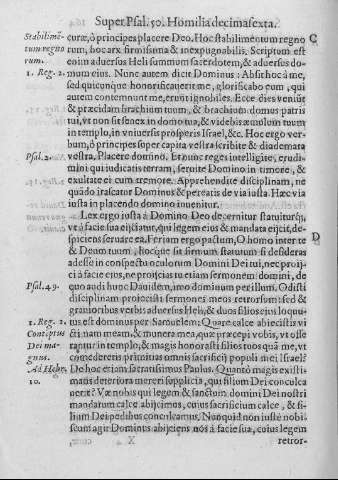 Super Psal. 50. Homilia decimasexta.
Stabilimē
tum regno
rum.
1. Reg. 2.
Psal. 2.
Psal. 49.
1. Reg. 2.
Contēptus
Dei ma-
gnus.
Ad Hebr.
10.
curæ, ò principes placere Deo. Hoc stabilimentum regno
rum, hoc arx firmissima & inexpugnabilis. Scriptum est
enim aduersus Heli summum sacerdotem, & aduersus do-
mum eius. Nunc autem dicit Dominus: Absit hoc à me,
sed quicunque honorificauerit me, glorificabo eum, qui
autem contemnunt me, erunt ignobiles. Ecce dies veniūt
& præcidam brachium tuum, & brachium domus patris
tui, vt non sit senex in domo tua, & videbis æmulum tuum
in templo, in vniuersis prosperis Israel, &c. Hoc ergo ver-
bum, ò principes super capita vestra scribite & diademata
vestra. Placere domino. Et nunc reges intelligite, erudi-
mini qui iudicatis terram, seruite Domino in timore, &
exultate ei cum tremore. Apprehendite disciplinam, ne
quādo irascatur Dominus & pereatis de via iusta. Hæc via
iusta in placendo domino inuenitur.
Lex ergo iusta à Domino Deo decernitur statuiturq́;,
vt à sua facie eijciatur, qui legem eius & mandata eijcit, de-
spiciens seruare ea. Feriam ergo pactum, O homo inter te
& Deum tuum, hocq́ue sit firmum statutum si desideras
adesse in conspectu oculorum Domini Dei tui, nec proij-
ci à facie eius, ne proijcias tu etiam sermonem domini, de
quo audi hunc Dauidem, imo dominum per illum. Odisti
disciplinam proiecisti sermones meos retrorsum: sed &
grauioribus verbis aduersus Heli, & duos filios eius loquu-
tus est dominus per Samuelem: Quare calce abiecistis vi
ctimam meam, & munera mea, quæ præcepi vobis, vt offe
rantur in templo, & magis honorasti filios tuos quā me, vt
comederetis primitias omnis sacrificij populi mei Israel?
De hoc etiam sacratissimus Paulus. Quantò magis existi-
matis deteriora mereri supplicia, qui filium Dei conculca
uerit? Væ nobis qui legem & sanctum domini Dei nostri
mandatum calce abijcimus, cuius sacrificium calce, & fi-
lium Dei pedibus conculcamus. Nunquid non iustè nobi-
scum agit Dominus abijciens nos à facie sua, cuius legem
X
retror-
C
D